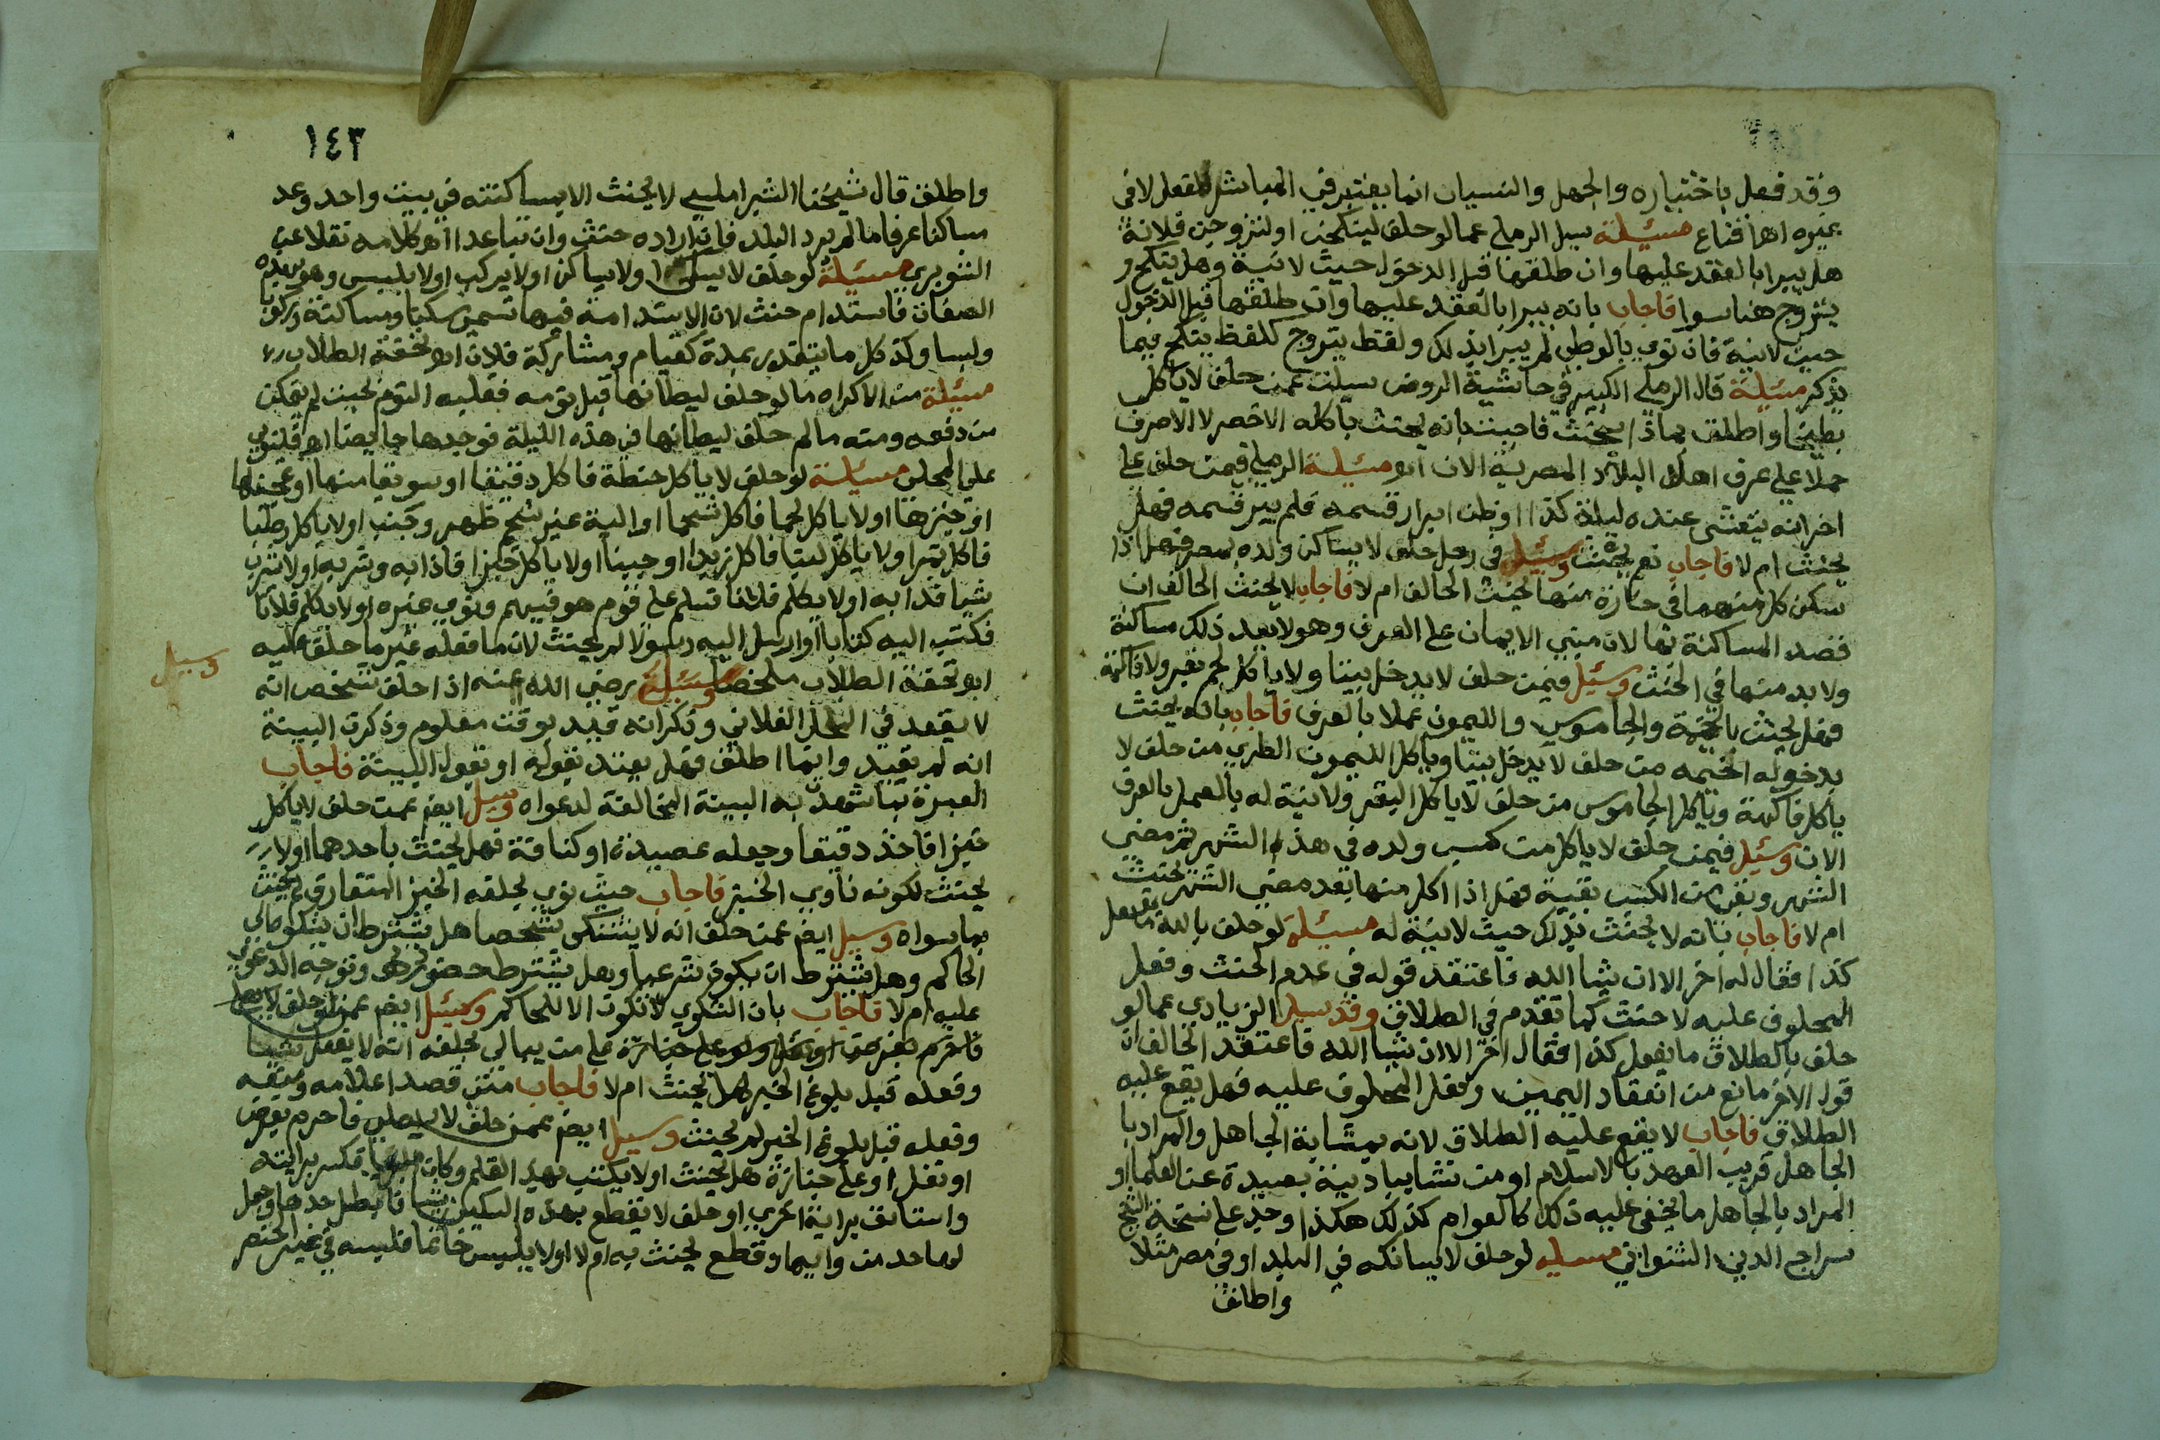 وقد فعل باختياره والجهل والنسيان انما يعتبر في المباشر للفعل لا في
غيره اهـ اقناع مسئلة سيل الرملي عما لو حلف لينكحن او لنزوجن فلانة
هل يبرا بالعقد عليها وان طلقها قبل الدخول حيث لانية وهل ينكح و
يتزوج هنا سوا فاجاب بانه يبرا بالعقد عليها وان طلقها قبل الدخول
حيث لانية فان نوى بالوطي لم يبرا بذلك ولفظ يتزوج كلفظ ينكح فيما
يذكر مسئلة قال الرملي الكبير في حاشية الروض سيلت عمن حلف لا ياكل
بطيخا واطلق بماذا يحنث فاجبت بانه يحنث باكله الاخضر لا الاصفر
حملا على عرف اهل البلاد المصرية الان اهـ مسئلة الرملي فيمن حلف على
اخر انه يتعشى عنده ليلة كذا او ظن ابرار قسمه فلم يبر قسمه فهل
يحنث ام لا فاجاب نعم يحنث وسئل في رجل حلف لا يساكن ولده بمصر فهل اذا
سكن كل منهما في حارة منها يحنث الحالف ام لا فاجاب لا يحنث الحالف ان
قصد المساكنة بها لان مبني الايمان على العرف وهو لا يعد ذلك مساكنة
ولا بد منها في الحنث وسئل فيمن حلف لا يدخل بيتا ولا ياكل لحم بقر ولا فاكهة
فهل يحنث بالخيمة والجاموس والليمون عملا بالعرف فاجاب بانه يحنث
بدخوله الخيمه من حلف لا يدخل بيتا وباكل الليمون الطري من حلف لا
ياكل فاكهة وباكل الجاموس من حلف لا ياكل البقر ولانية له بالعمل بالعرف
الان وسئل فيمن حلف لا ياكل من كسب ولده في هذا الشهر ثم مضى
الشهر وبقي من الكسب بقية فهل اذا اكل منها بعد مضي الشهر يحنث
ام لا فاجاب بانه لا يحنث بذلك حيث لانية له مسئلة لو حلف بالله ما يفعل
كذا فقال له اخر الا ان شا الله فاعتقد قوله في عدم الحنث وفعل
المحلوف عليه لا حنث كما تقدم في الطلاق وقد سيل الزيادي عما لو
حلف بالطلاق ما يفعل كذا فقال اخر الا ان شا الله فاعتقد الحالف ان
قول الاخر مانع من انعقاد اليمين وفعل المحلوف عليه فهل يقع عليه
الطلاق فاجاب لا يقع عليه الطلاق لانه بمثابة الجاهل والمراد با
الجاهل قريب العهد بالاسلام او من نشا ببادية بعيدة عن العلما او
المراد بالجاهل ما يخفى عليه ذلك كالعوام كذلك هكذا وجد على نسخة الشيخ
سراج الدين الشنواني مسيله لو حلف لا يساكنه في البلد او في مصر مثلا
واطلق
١٤٣
واطلق قال شيخنا الشبراملسي لا يحنث الا بمساكنته في بيت واحد وعد
مساكنا عرفا ما لم يرد البلد فان اراده حنث وان تباعدا اهـ كلامه نقلا عن
الشوبري مسئلة لو حلف لا ولا يساكن او لا يركب او لا يلبس وهو بهذه
الصفات فاستدام حنث لان الاستدامة فيها تسمى سكنا ومساكنة وركوبا
ولبسا وكذا كل ما يتقدر بمدة كقيام ومشاركة فلان اهـ تحفة الطلاب
مسئلة من الاكراه ما لو حلف ليطانها قبل نومه فغلبه النوم بحيث لم يمكن
من دفعه ومنه ما لو حلف ليطانها في هذه الليلة فوجدها حايضا اهـ قليوبي
على المحلى مسئلة لو حلف لا ياكل حنطة فاكل دقيقا او سويقا منها او عجينها
او خبزها او لا ياكل لحما فاكل شحما او الية غير شحم ظهر وجنب او لا ياكل رطبا
فاكل تمرا او لا ياكل لبنا فاكل زبدا او جبنا او لا ياكل خبزا فاذابه وشربه او لا يشرب
شيا فذابه او لا يكلم فلانا فسلم على قوم هو فيهم ونوى غيره او لا يكلم فلانا
فكتب اليه كتابا او ارسل اليه رسولا لم يحنث لان ما فعله غير ما حلف عليه
اهـ تحفة الطلاب ملخصا وسئل رضي الله عنه اذا حلف شخص انه
لا يقعد في المحل الفلاني وذكر انه قيد بوقت معلوم وذكرت البينة
انه لم يقيد وانما اطلق فهل يعتد بقوله او بقول البينة فاجاب
العبرة بما شهدت به البينة المخالفة لدعواه وسيل ايضم عمن حلف لا ياكل
خبزا فاخذ دقيقا وجعله عصيدة او كنافة فهل يحنث باحدهما اولا
يحنث لكونه ناوي الخبز فاجاب حيث نوى بحلفه الخبز المتعارف لم يحنث
بما سواه وسيل ايضم عمن حلف انه لا يشتكى شخصا هل يشترط ان يشكو الى
الحاكم وهل يشترط ان يكون شرعيا وهل يشترط حضور وتوجه الدعوى
عليه ام لا فاجاب بان الشكوى لا تكون الا للحاكم وسئل ايضم عمن لو حلف لا يصلي
فاحرم بفرض او نفل ولو على جنازة على من يبالي بحلفه انه لا يفعل شيا
وفعله قبل بلوغ الخبر هل يحنث ام لا فاجاب متى قصد اعلامه ومنعه
وفعله قبل بلوغ الخبر لم يحنث وسيل ايضم عمن حلف لا يصلي فاحرم بفرض
او نفل او على جنازة هل يحنث او لا يكتب بهذا القلم وكان مبريا فكسر برايته
واستانف براية اخرى او حلف لا يقطع بهذه السكين شيا فابطل حدها وجعل
لها حد من وابها وقطع يحنث به ام لا او لا يلبس خاتما فلبسه في غير الخنصر
وسيل